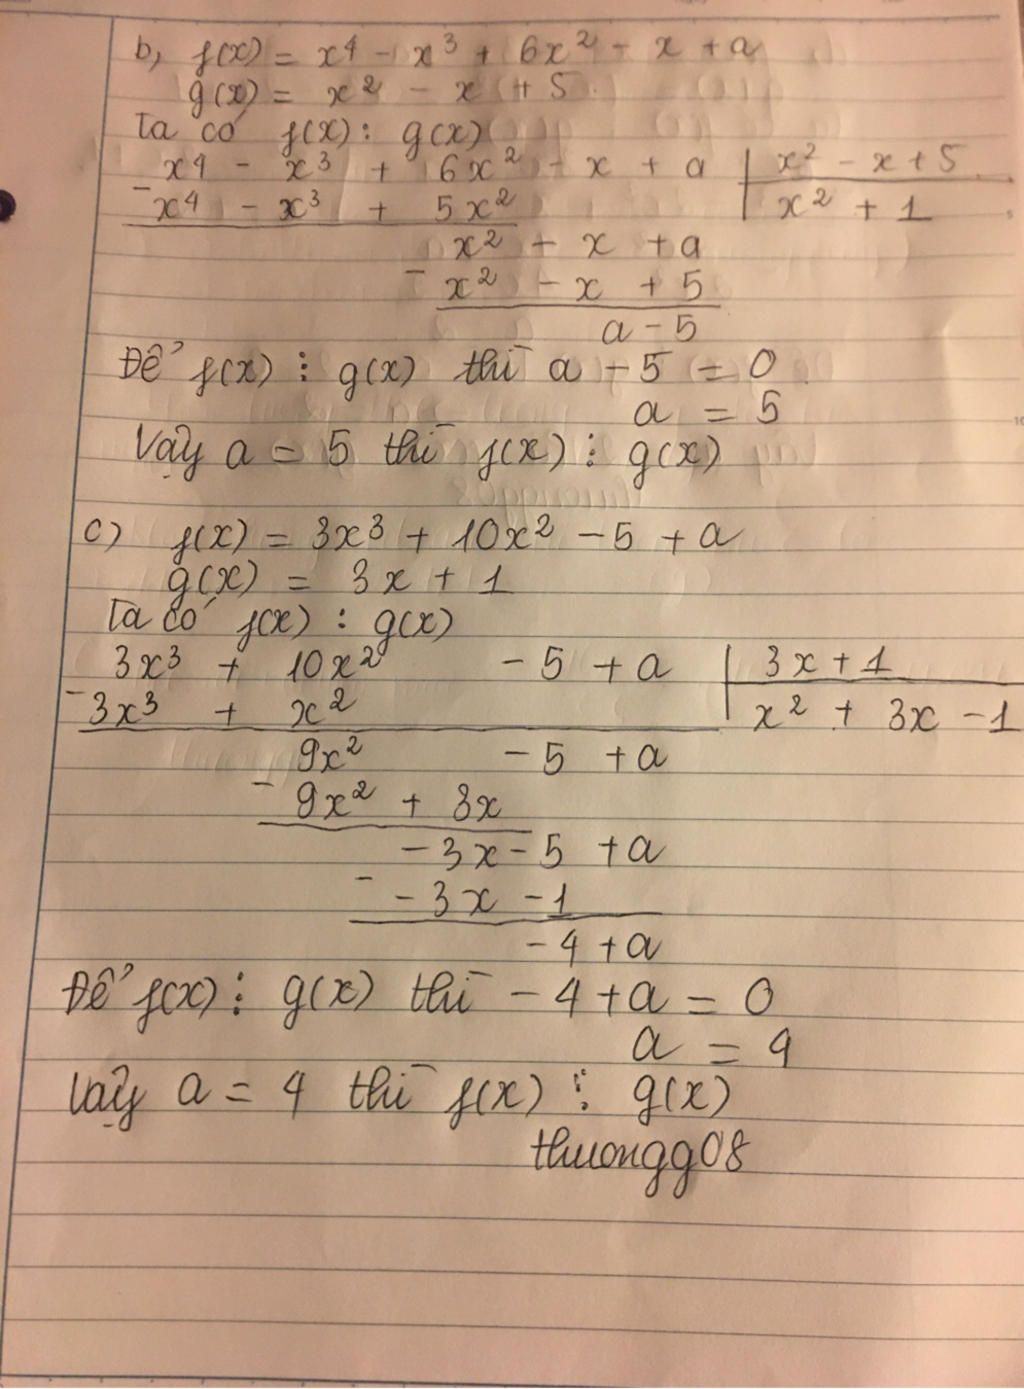 b, f(x) = x⁴ - x³ + 6x² - x + a
g(x) = x² - x + 5
Ta có f(x) : g(x)
x⁴ - x³ + 6x² - x + a | x² - x + 5
- x⁴ - x³ + 5x² | x² + 1
x² - x + a
- x² - x + 5
a - 5
Để f(x) ⋮ g(x) thì a - 5 = 0
a = 5
Vậy a = 5 thì f(x) ⋮ g(x)
c) f(x) = 3x³ + 10x² - 5 + a
g(x) = 3x + 1
Ta có f(x) : g(x)
3x³ + 10x² - 5 + a | 3x + 1
- 3x³ + x² | x² + 3x - 1
9x² - 5 + a
- 9x² + 3x
- 3x - 5 + a
- - 3x - 1
- 4 + a
Để f(x) ⋮ g(x) thì - 4 + a = 0
a = 4
Vậy a = 4 thì f(x) ⋮ g(x)
thuongg08